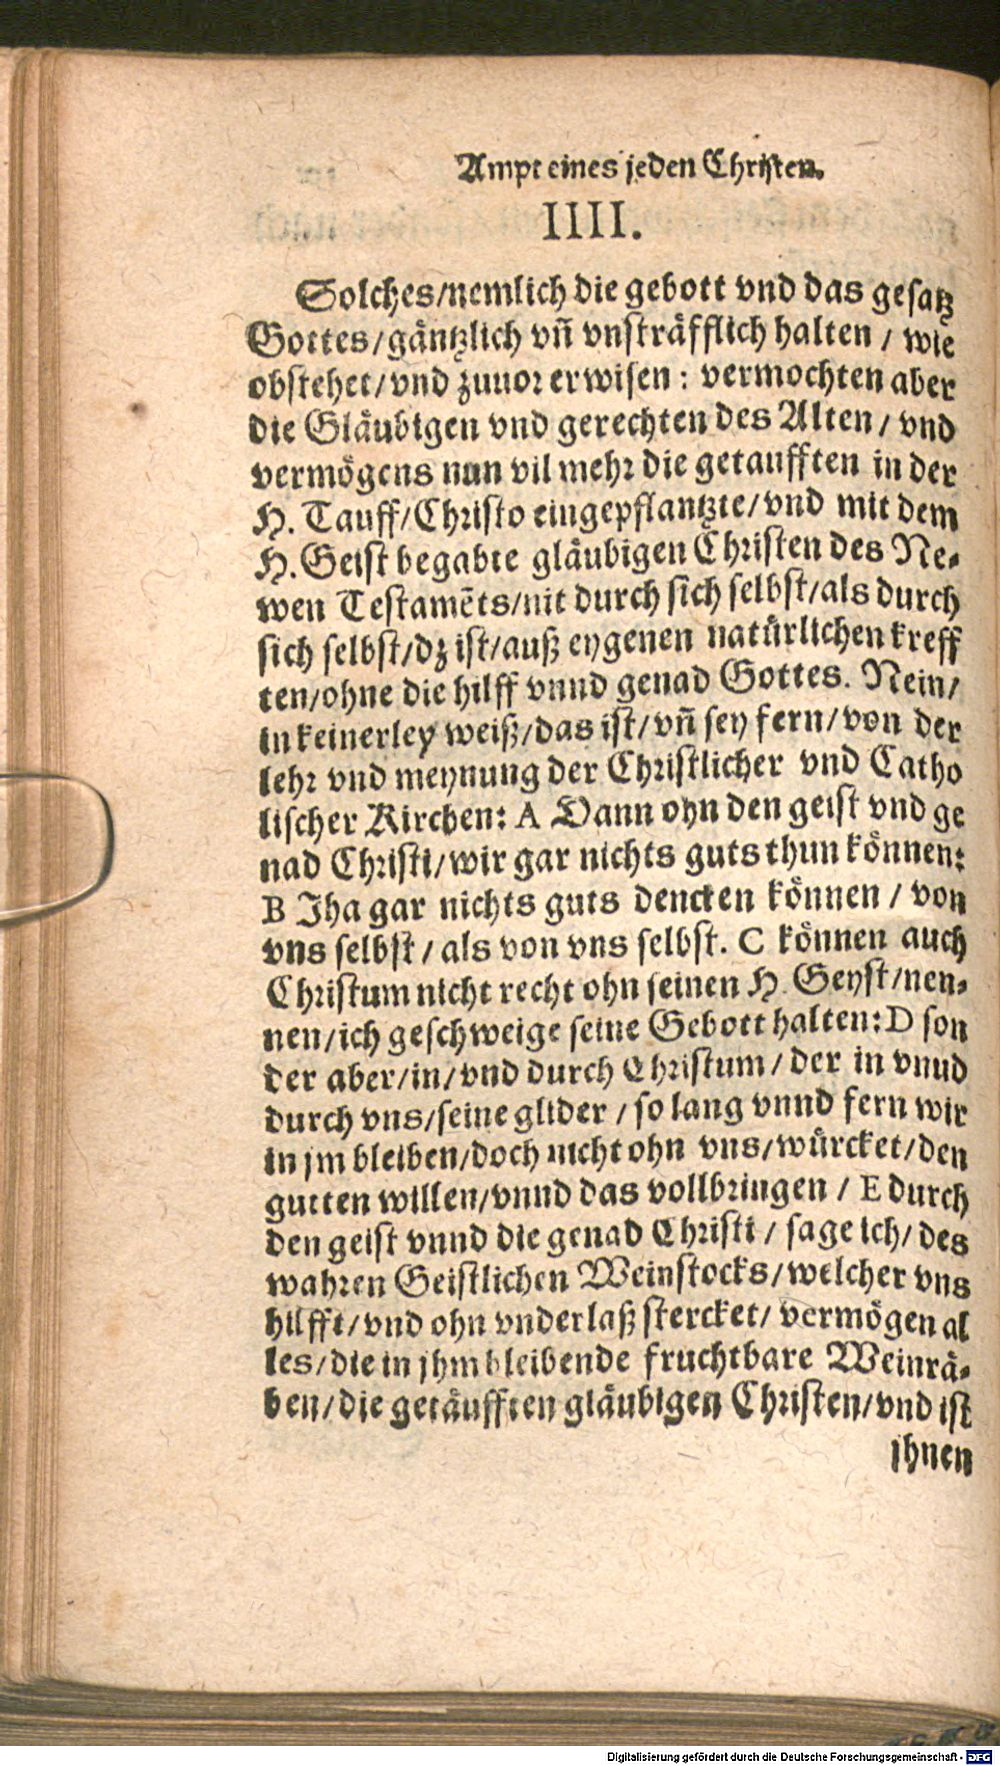 Ampt eines jeden Christen.
IIII.
Solches/nemlich die gebott vnd das gesatz
Gottes/gäntzlich vñ vnsträfflich halten / wie
obstehet/vnd zuuor erwisen : vermochten aber
die Gläubigen vnd gerechten des Alten/ vnd
vermögens nun vil mehr die getaufften in der
H. Tauff/Christo eingepflantzte/vnd mit dem
H. Geist begabte gläubigen Christen des Ne-
wen Testamẽts/nit durch sich selbst/als durch
sich selbst/dz ist/auß eygenen natürlichen kreff
ten/ohne die hilff vnnd genad Gottes. Nein/
in keinerley weiß/das ist/vñ sey fern/von der
lehr vnd meynung der Christlicher vnd Catho
lischer Kirchen: A Dann ohn den geist vnd ge
nad Christi/wir gar nichts guts thun können:
B Jha gar nichts guts dencken können / von
vns selbst / als von vns selbst. C können auch
Christum nicht recht ohn seinen H. Geyst/nen-
nen/ich geschweige seine Gebott halten: D son
der aber/in/vnd durch Christum / der in vnnd
durch vns/seine glider / so lang vnnd fern wir
in jm bleiben/doch nicht ohn vns/würcket/den
gutten willen/vnnd das vollbringen / E durch
den geist vnnd die genad Christi / sage ich/ des
wahren Geistlichen Weinstocks/welcher vns
hilfft/vnd ohn vnderlaß stercket/ vermögen al
les/die in jhm bleibende fruchtbare Weinrä-
ben/die getäufften gläubigen Christen/vnd ist
jhnen
Digitalisierung gefördert durch die Deutsche Forschungsgemeinschaft - DFG